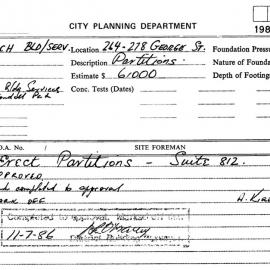 CITY PLANNING DEPARTMENT
198
CH BLD/SERV. Location 264-278 GEORGE ST. Foundation Pressu
Description Partitions. Nature of Founda
Estimate $ 61000 Depth of Footings
Bldg Services Conc. Tests (Dates)
D.A. No. SITE FOREMAN
Erect Partitions - Suite 812.
PPROVED
completed to approval
WORK OFF
Completed to
11-7-86 District Building